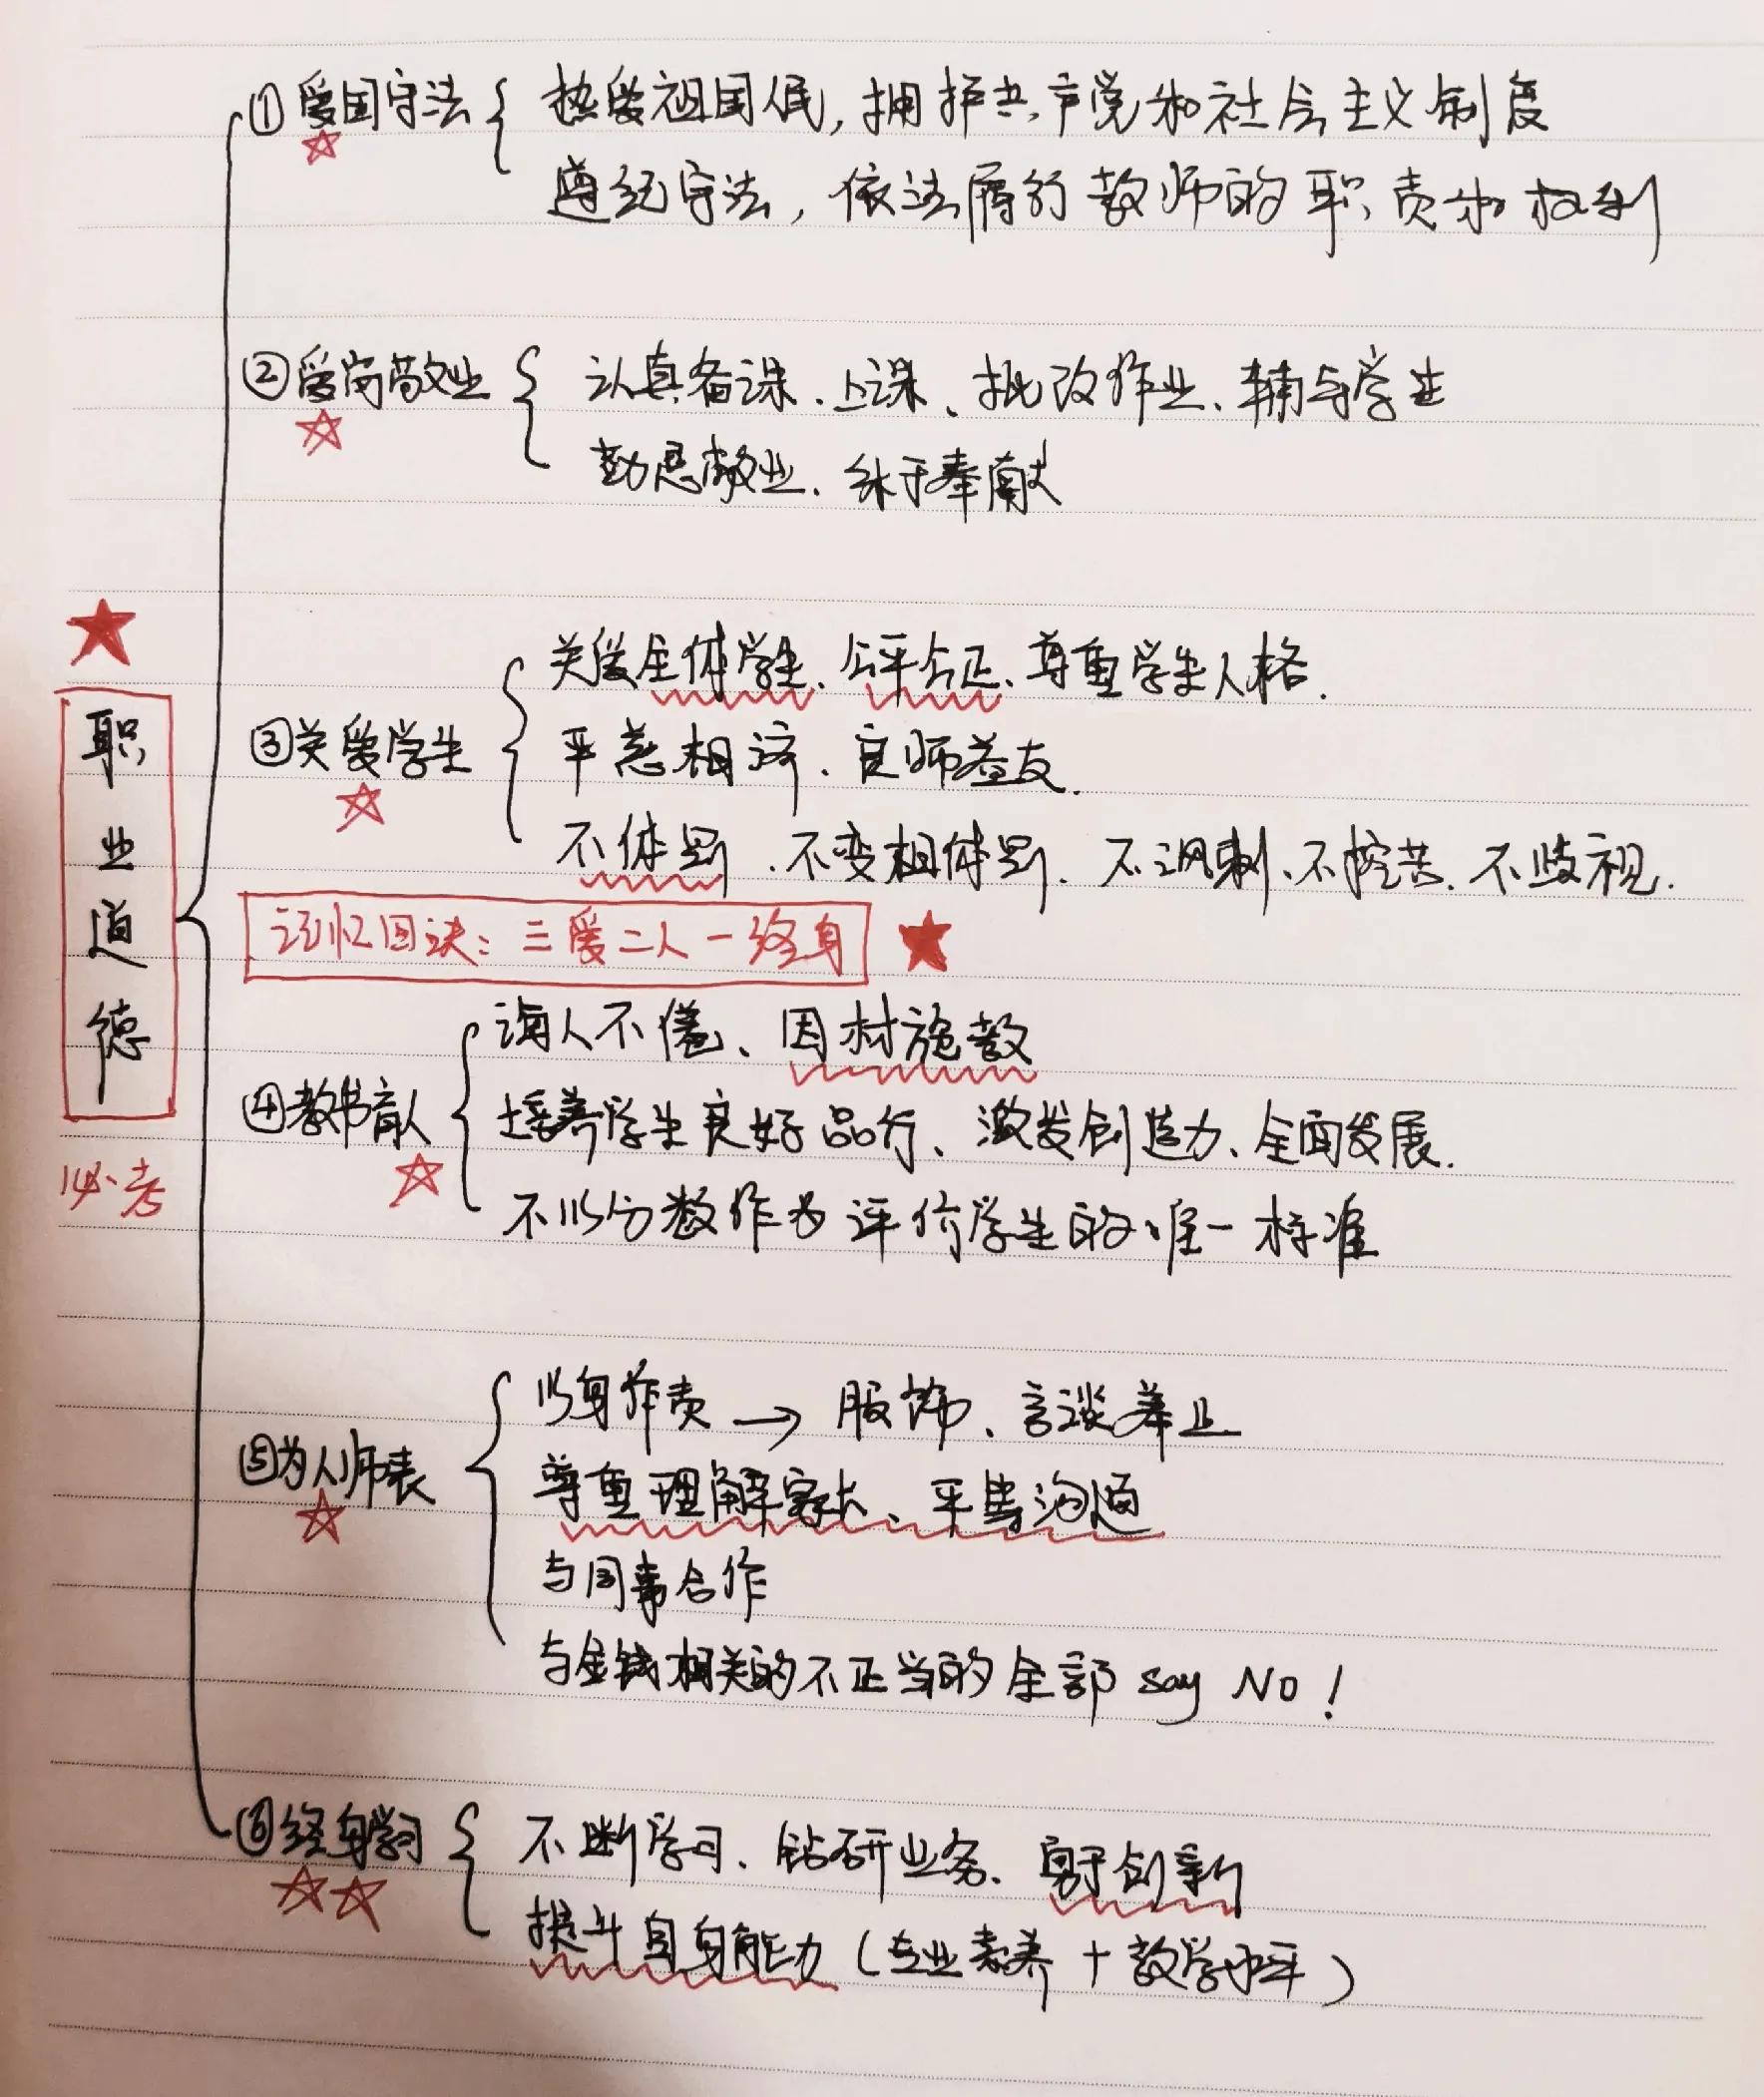 ①爱国守法
热爱祖国人民,拥护共产党和社会主义制度
遵纪守法,依法履行教师的职责和权利
②爱岗敬业
认真备课、上课、批改作业、辅导学生
勤恳敬业、乐于奉献
③关爱学生
关爱全体学生、公平公正、尊重学生人格.
严慈相济、良师益友.
不体罚、不变相体罚、不讽刺、不挖苦、不歧视.
职业道德
必考
记忆口诀:三爱二人一终身
④教书育人
诲人不倦、因材施教
培养学生良好品行、激发创造力、全面发展.
不以分数作为评价学生的唯一标准
⑤为人师表
以身作责→服饰、言谈举止
尊重理解家长、平等沟通
与同事合作
与金钱相关的不正当的全部 say No!
⑥终身学习
不断学习、钻研业务、勇于创新
提升自身能力(专业素养+教学水平)